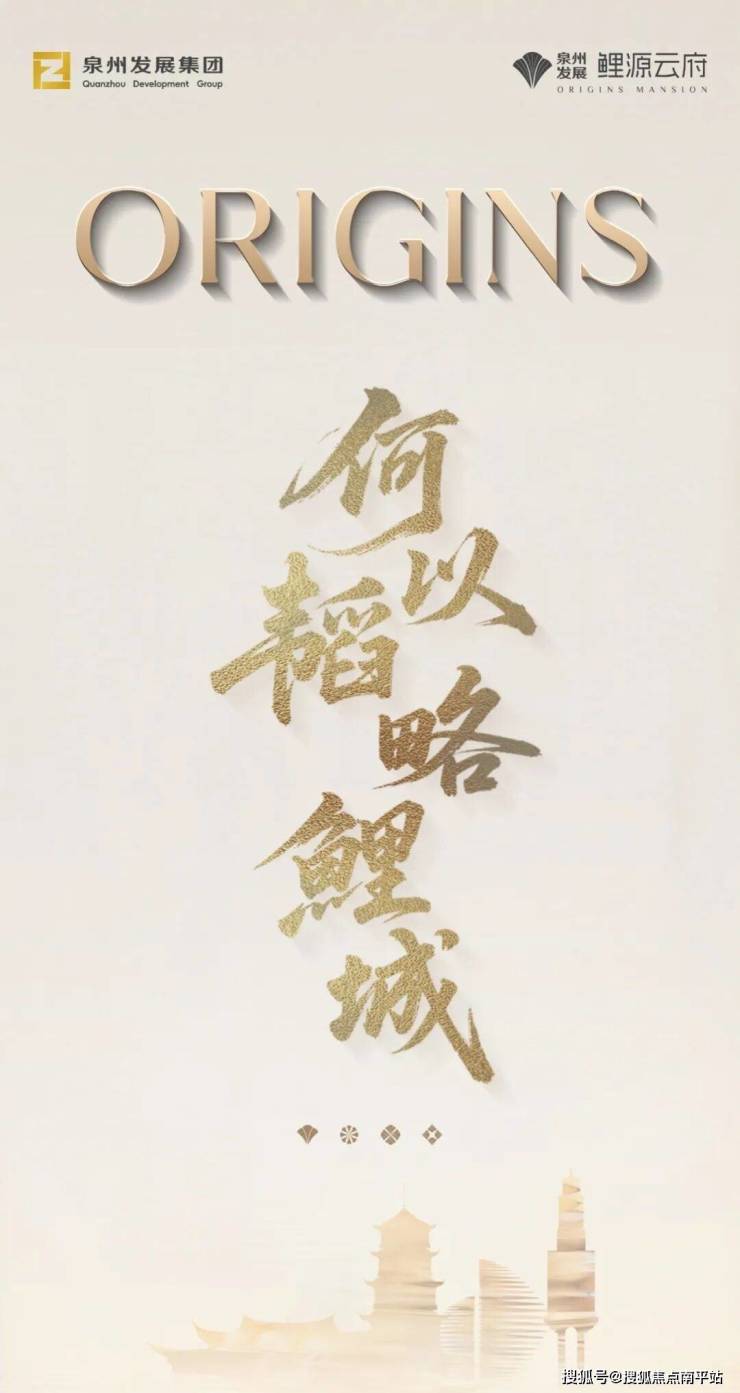 泉州发展集团
Quanzhou Development Group
泉州发展 鲤源云府
ORIGINS MANSION
ORIGINS
何以
韬略
鲤城
搜狐号@搜狐焦点南平站